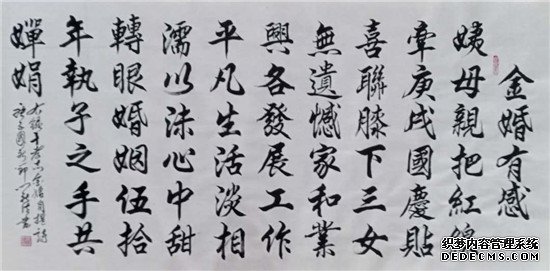 金婚有感
姨母親把紅線
牽庚戌國慶貼
喜聯膝下三女
無遺憾家和業
興各發展工作
平凡生活淡相
濡以沫心中甜
轉眼婚姻伍拾
年執子之手共
嬋娟
织梦内容管理系统
DEDECMS.COM